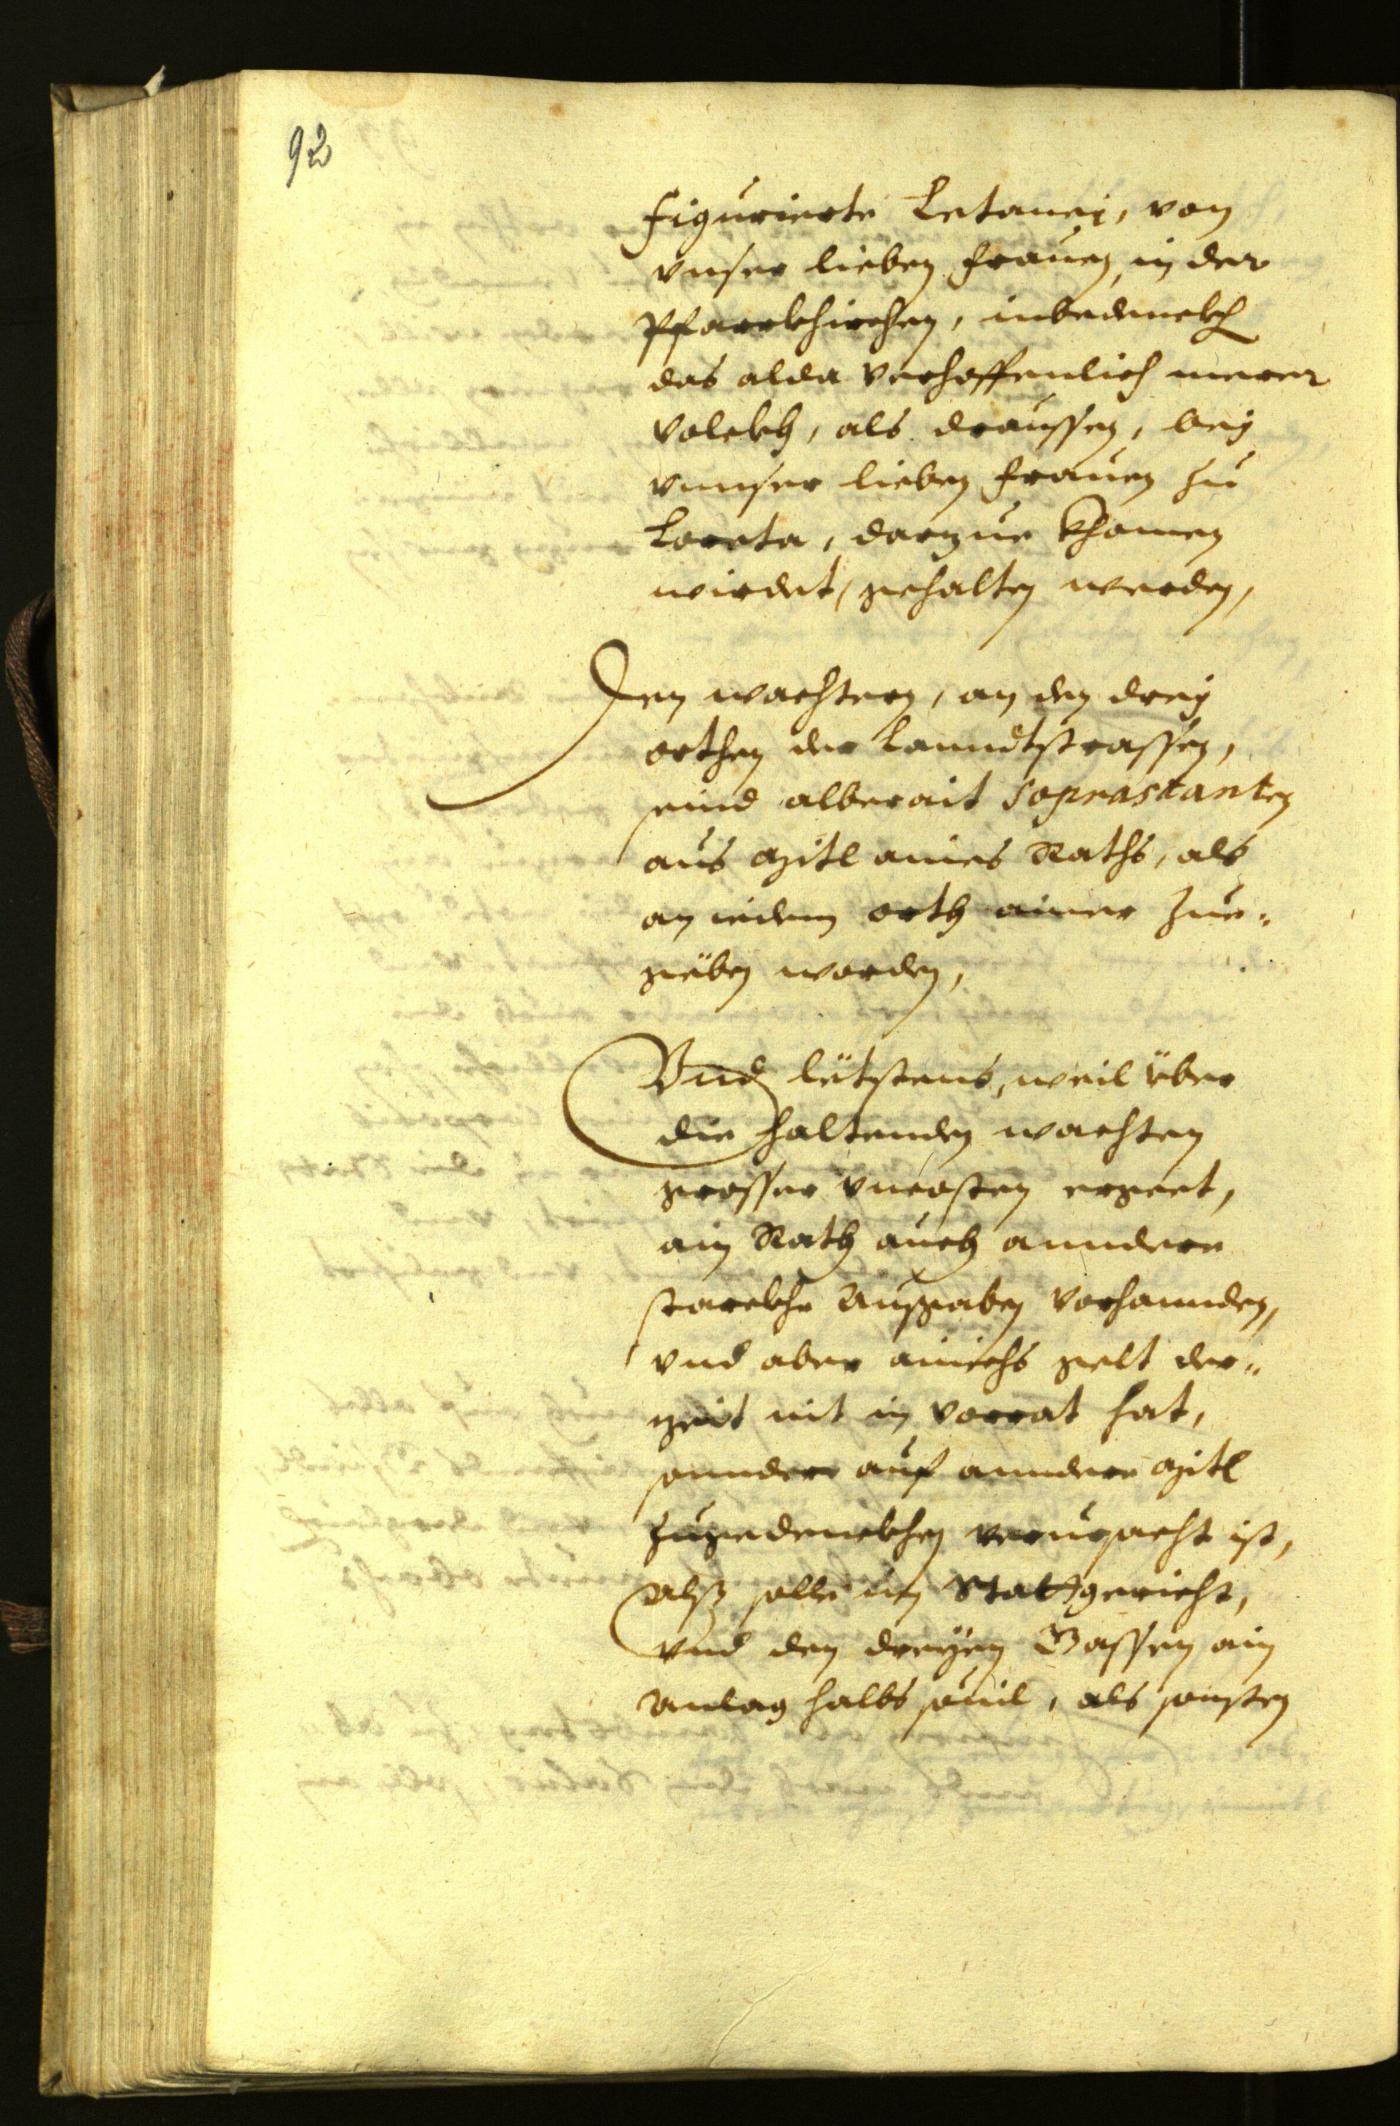 92
figurierte Letaney, von
vnser lieben frauen, in der
Pfarrkhirchen, inbedenckh
das alda verhoffenlich merer
Volckh, als draussen, bey
vnnser lieben frauen zu
Loreta, darzue khomen
wirdet, gehalten werden,
Den wachtern, an den drey
orthen der Lanndtstrassen,
seind alberait Soprastanten
aus mitl aines Raths, als
an iedem orth ainer zue„
geben worden,
Vnd letstens, weil über
die haltenden wachten
grosser vncosten ergeet,
ain Rath auch anndere
starckhe Ausgaben vorhannden,
vnd aber ainichs gelt der„
zeit nit in vorrat hat,
sonnder auf anndere mitl
zugedenckhen verursacht ist,
Alß solle im Stattgericht,
vnd den dreyen Gassen ain
Anlag halbs souil, als sonsten